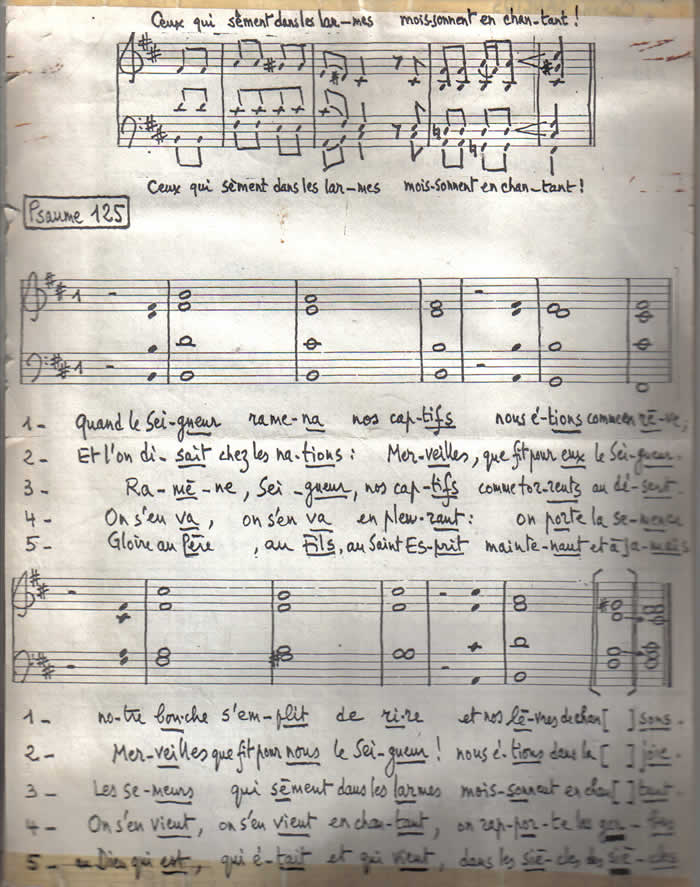 Ceux qui sèment dans les lar-mes mois-sonnent en chan-tant !
Ceux qui sèment dans les lar-mes mois-sonnent en chan-tant !
Psaume 125
1 - Quand le Sei-gneur rame-na nos cap-tifs nous é-tions comme en rê-ve,
2 - Et l'on di-sait chez les na-tions : Mer-veilles, que fit pour eux le Sei-gneur.
3 - Ra-mè-ne, Sei-gneur, nos cap-tifs comme tor-rents au dé-sert.
4 - On s'en va, on s'en va en pleu-rant : on porte la se-mence
5 - Gloire au Père, au Fils, au Saint Es-prit mainte-nant et à ja-mais
1 - no-tre bou-che s'em-plit de ri-re et nos lè-vres de chan[ ]sons.
2 - Mer-veilles que fit pour nous le Sei-gneur ! nous é-tions dans la [ ] joie.
3 - Les se-meurs qui sèment dans les larmes mois-sonnent en chan[ ]tant.
4 - On s'en vient, on s'en vient en chan-tant, on rap-por-te les ger-bes
5 - au Dieu qui est, qui é-tait et qui vient, dans les siè-cles des siè-cles